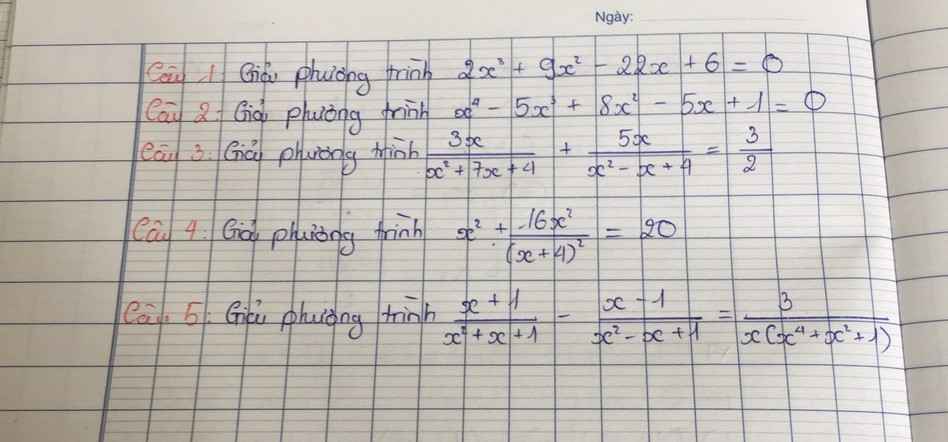 Ngày:
Câu 1: Giải phương trình 2x³ + 9x² - 22x + 6 = 0
Câu 2: Giải phương trình x⁴ - 5x³ + 8x² - 5x + 1 = 0
Câu 3: Giải phương trình 3x/(x² + 7x + 4) + 5x/(x² - x + 4) = 3/2
Câu 4: Giải phương trình x² + 16x²/(x + 4)² = 20
Câu 5: Giải phương trình (x + 1)/(x² + x + 1) - (x - 1)/(x² - x + 1) = 3/(x(x⁴ + x² + 1))